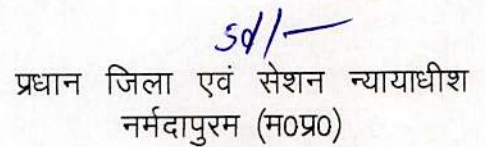 sd/-
प्रधान जिला एवं सेशन न्यायाधीश
नर्मदापुरम (म0प्र0)